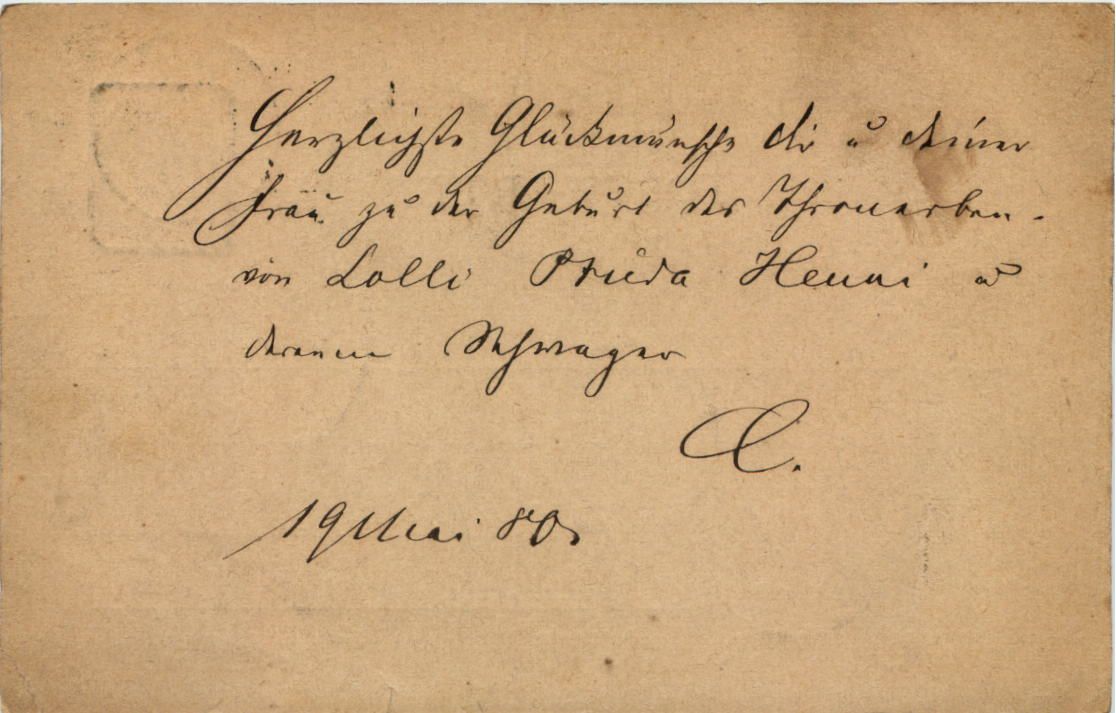 Herzlichste Glückwünsche dir u deiner
Frau zu der Geburt des Thronerben.
von Lolli Henni u
deinem Schwager
C.
19 Mai 80.